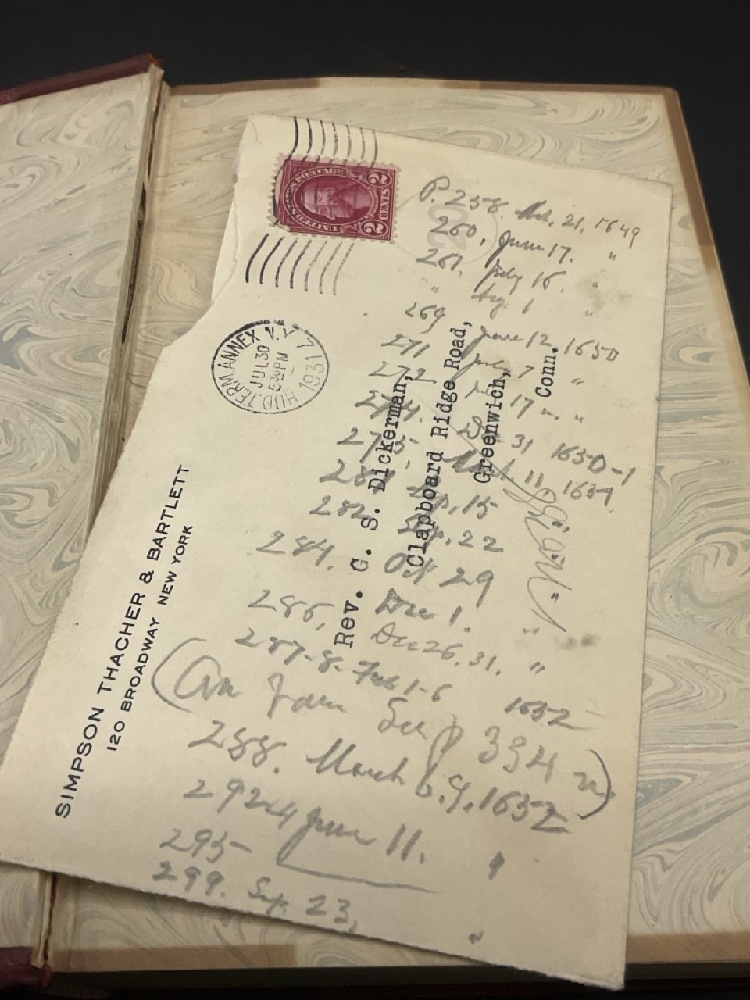 UNITED STATES POSTAGE
2 CENTS 2
HUD. TERM. ANNEX N.Y. 7
JUL 30
5 30 PM
1931
SIMPSON THACHER & BARTLETT
120 BROADWAY NEW YORK
Rev. G. S. Dickerman,
Clapboard Ridge Road,
Greenwich,
Conn.
P. 258. 21, 1649
260, June 17. "
261. July 16. "
" 1 "
269 June 12 1650
271 July 7 "
272 17 "
274. 31 1650-1
275, March 11 1651
15
282 Sep. 22
284. Oct 29
286, Dec 1. "
Dec 26. 31. "
287-8. Feb 1-6 1652
See p 394
288. March 6.9. 1652
292-4 June 11.
295
299. Sep. 23,